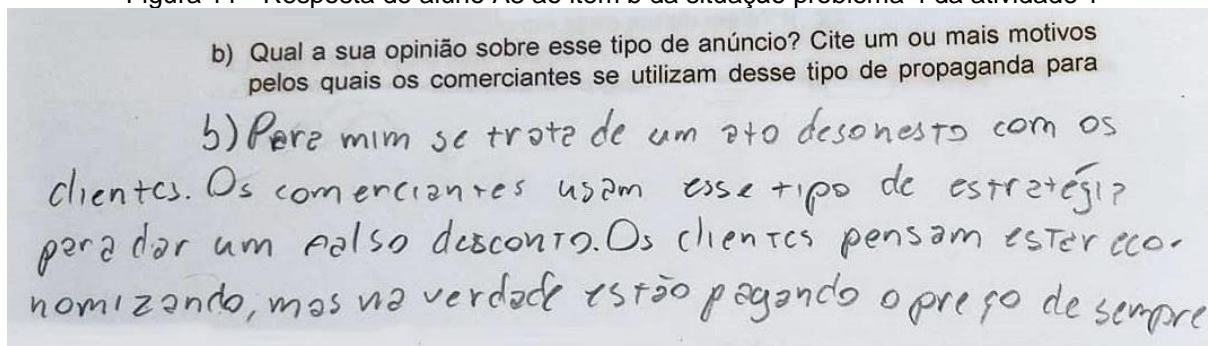 Figura 14 – Resposta do aluno A8 ao item b da situação problema 1 da atividade 1
b) Qual a sua opinião sobre esse tipo de anúncio? Cite um ou mais motivos
pelos quais os comerciantes se utilizam desse tipo de propaganda para
b) Para mim se trata de um ato desonesto com os
clientes. Os comenciantes usam esse tipo de estratégia
para dar um falso desconto. Os clientes pensam estar eco-
nomizando, mas na verdade estão pagando o preço de sempre